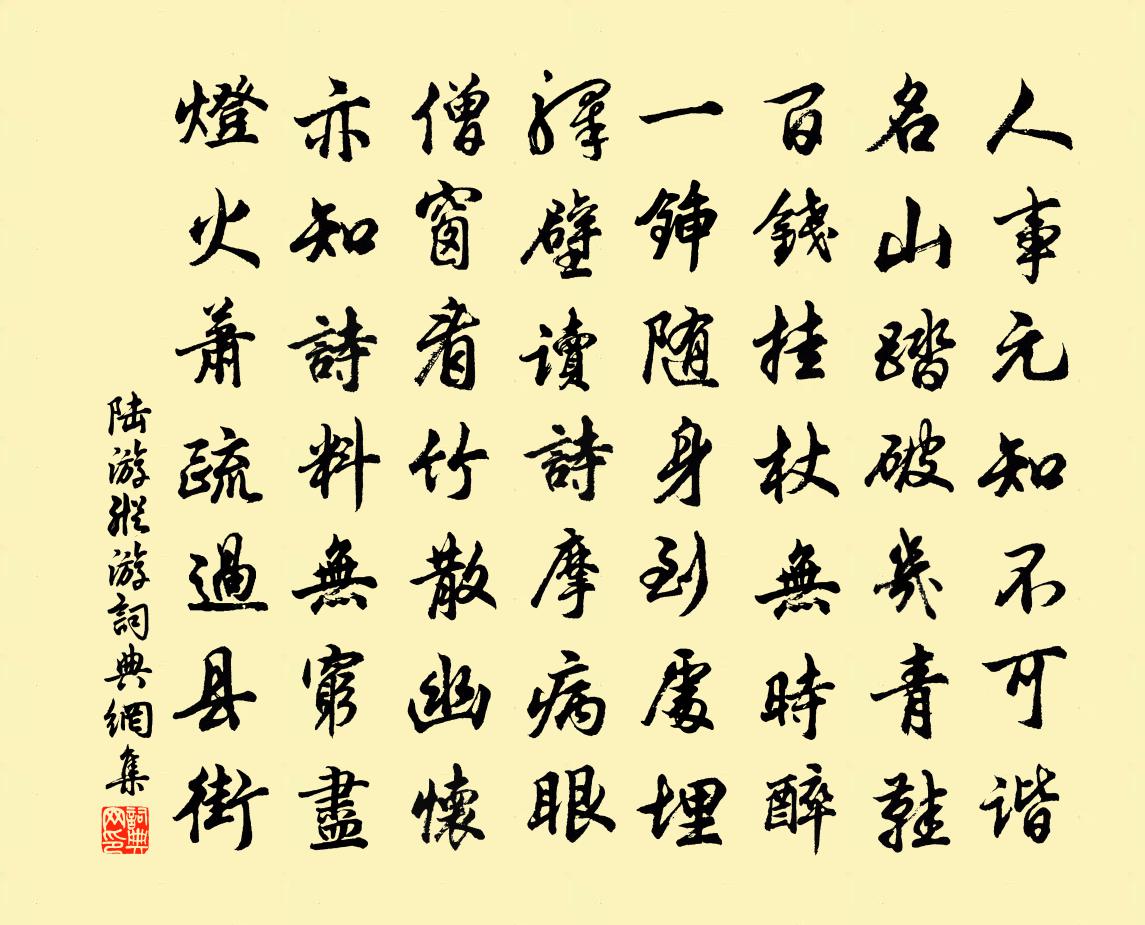 人事元知不可谐
名山踏破几青鞋
百錢挂杖無時醉
一鍤随身到處埋
驛壁讀詩摩病眼
僧窗看竹散幽懷
亦知詩料無窮盡
燈火蕭疏過县街
陆游縱游詞典網集
詞典网印